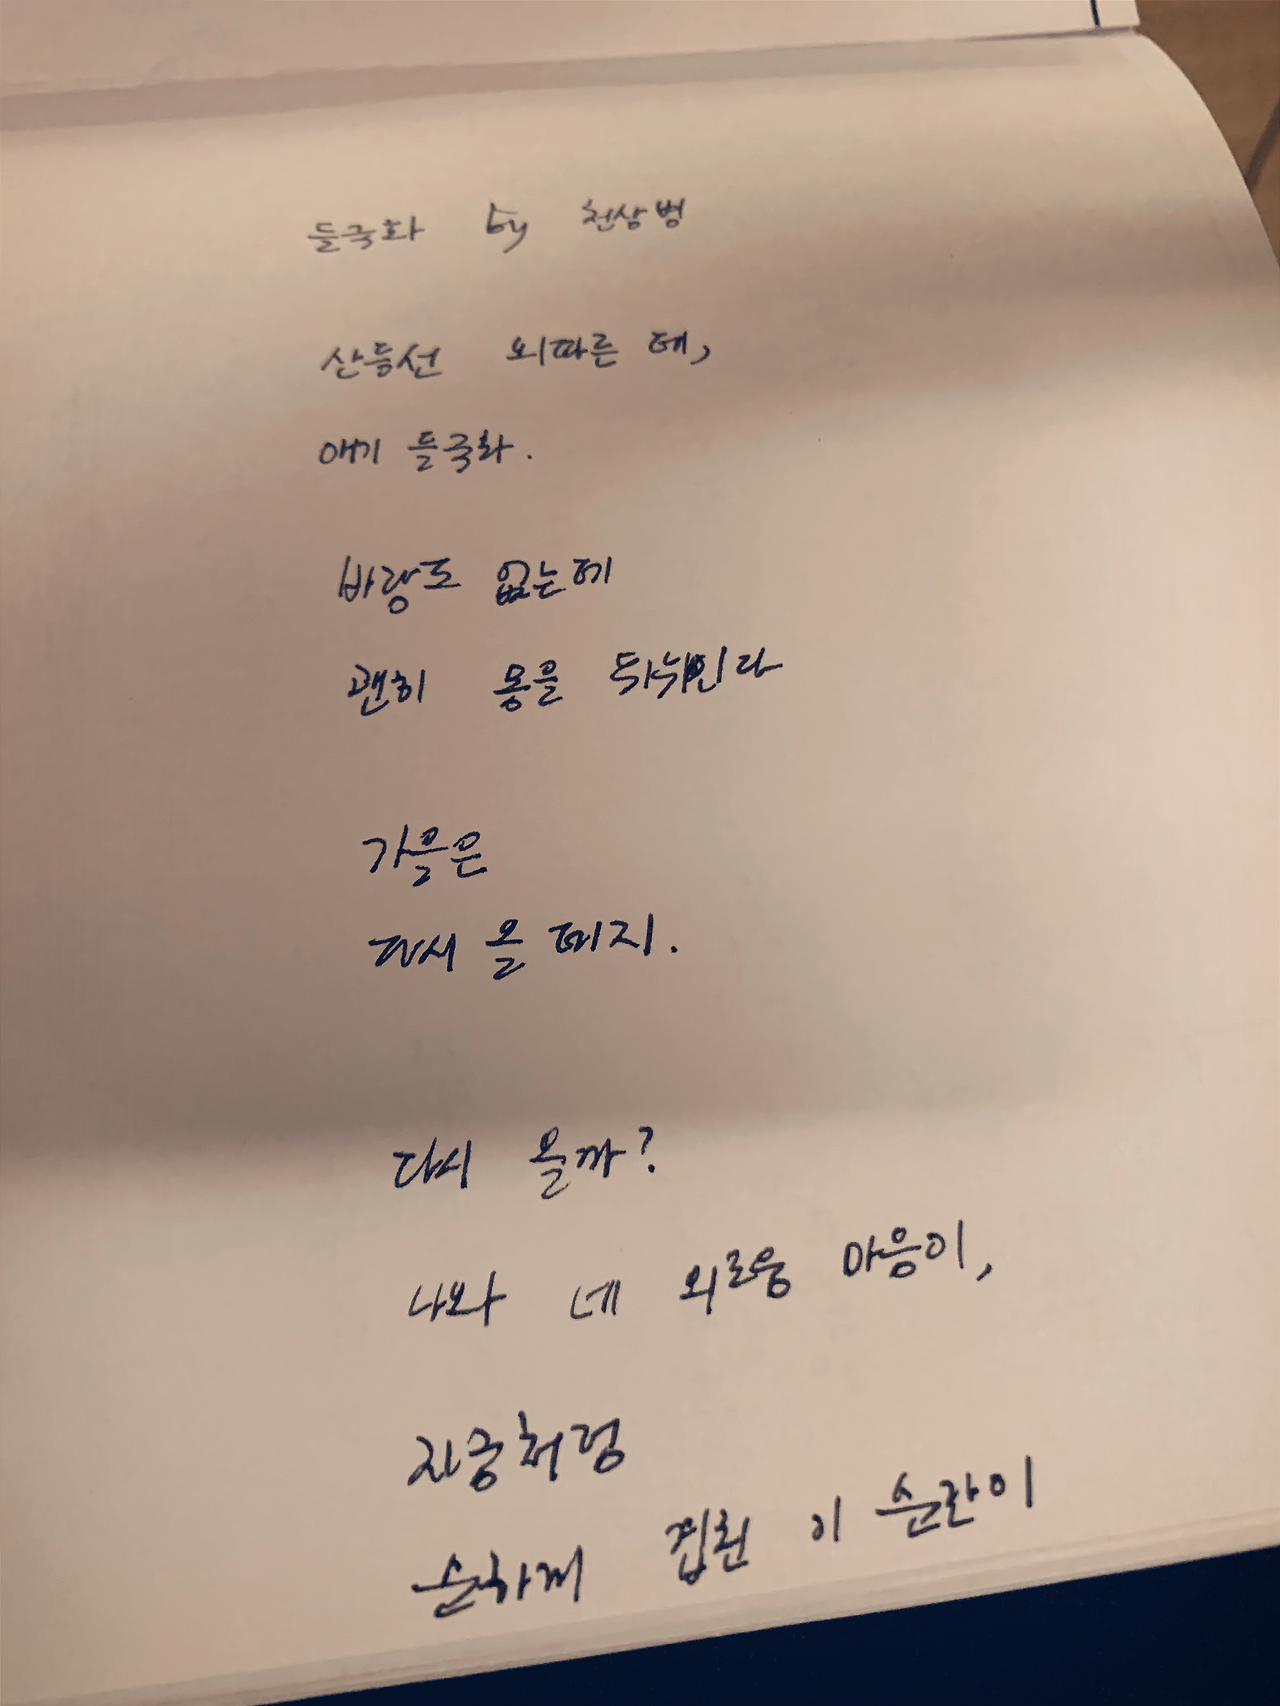 들국화 by 천상병
산등선 외따른 데,
애기 들국화.
바람도 없는데
괜히 몸을 뒤뉘인다
가을은
다시 올 테지.
다시 올까?
나와 네 외로운 마음이,
지금처럼
순하게 겹친 이 순간이